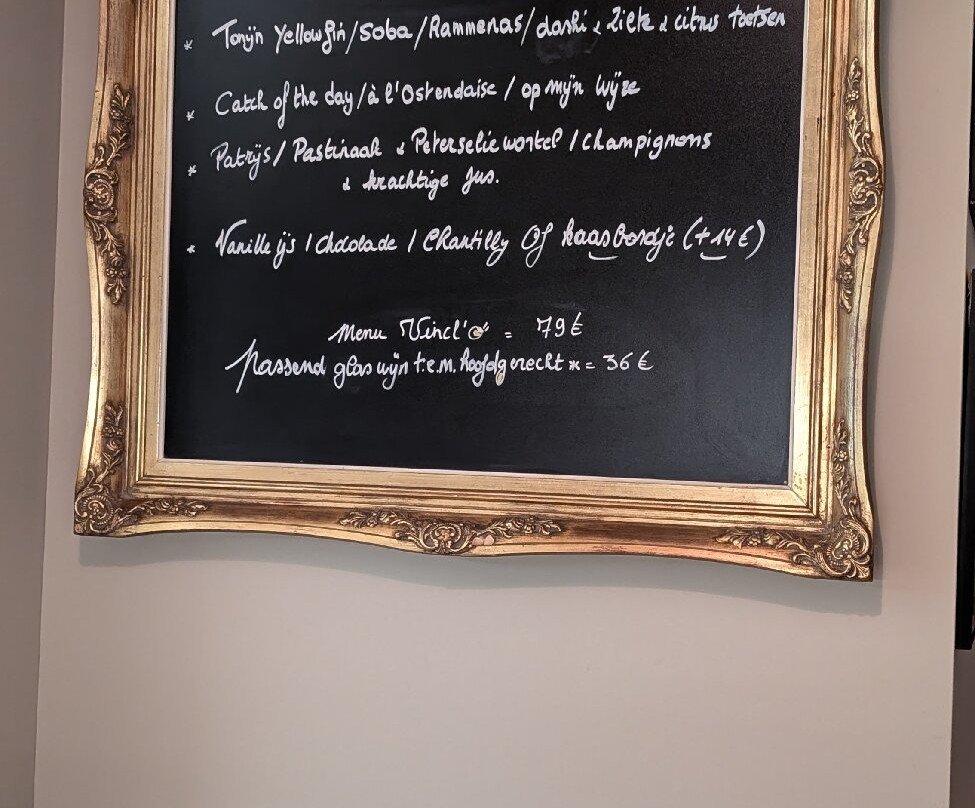 * Tonijn Yellowfin/Soba/Rammenas/dashi & zilte & citrus toetsen
* Catch of the day/à l'Ostendaise / op mijn wijze
* Patrijs/ Pastinaak & Peterselie wortel / Champignons
& krachtige jus.
* Vanille ijs / Chocolade / Chantilly Of kaasbordje (+14€)
Menu Vincl'o' = 79€
passend glas wijn t.e.m. hoofdgerecht * = 36€